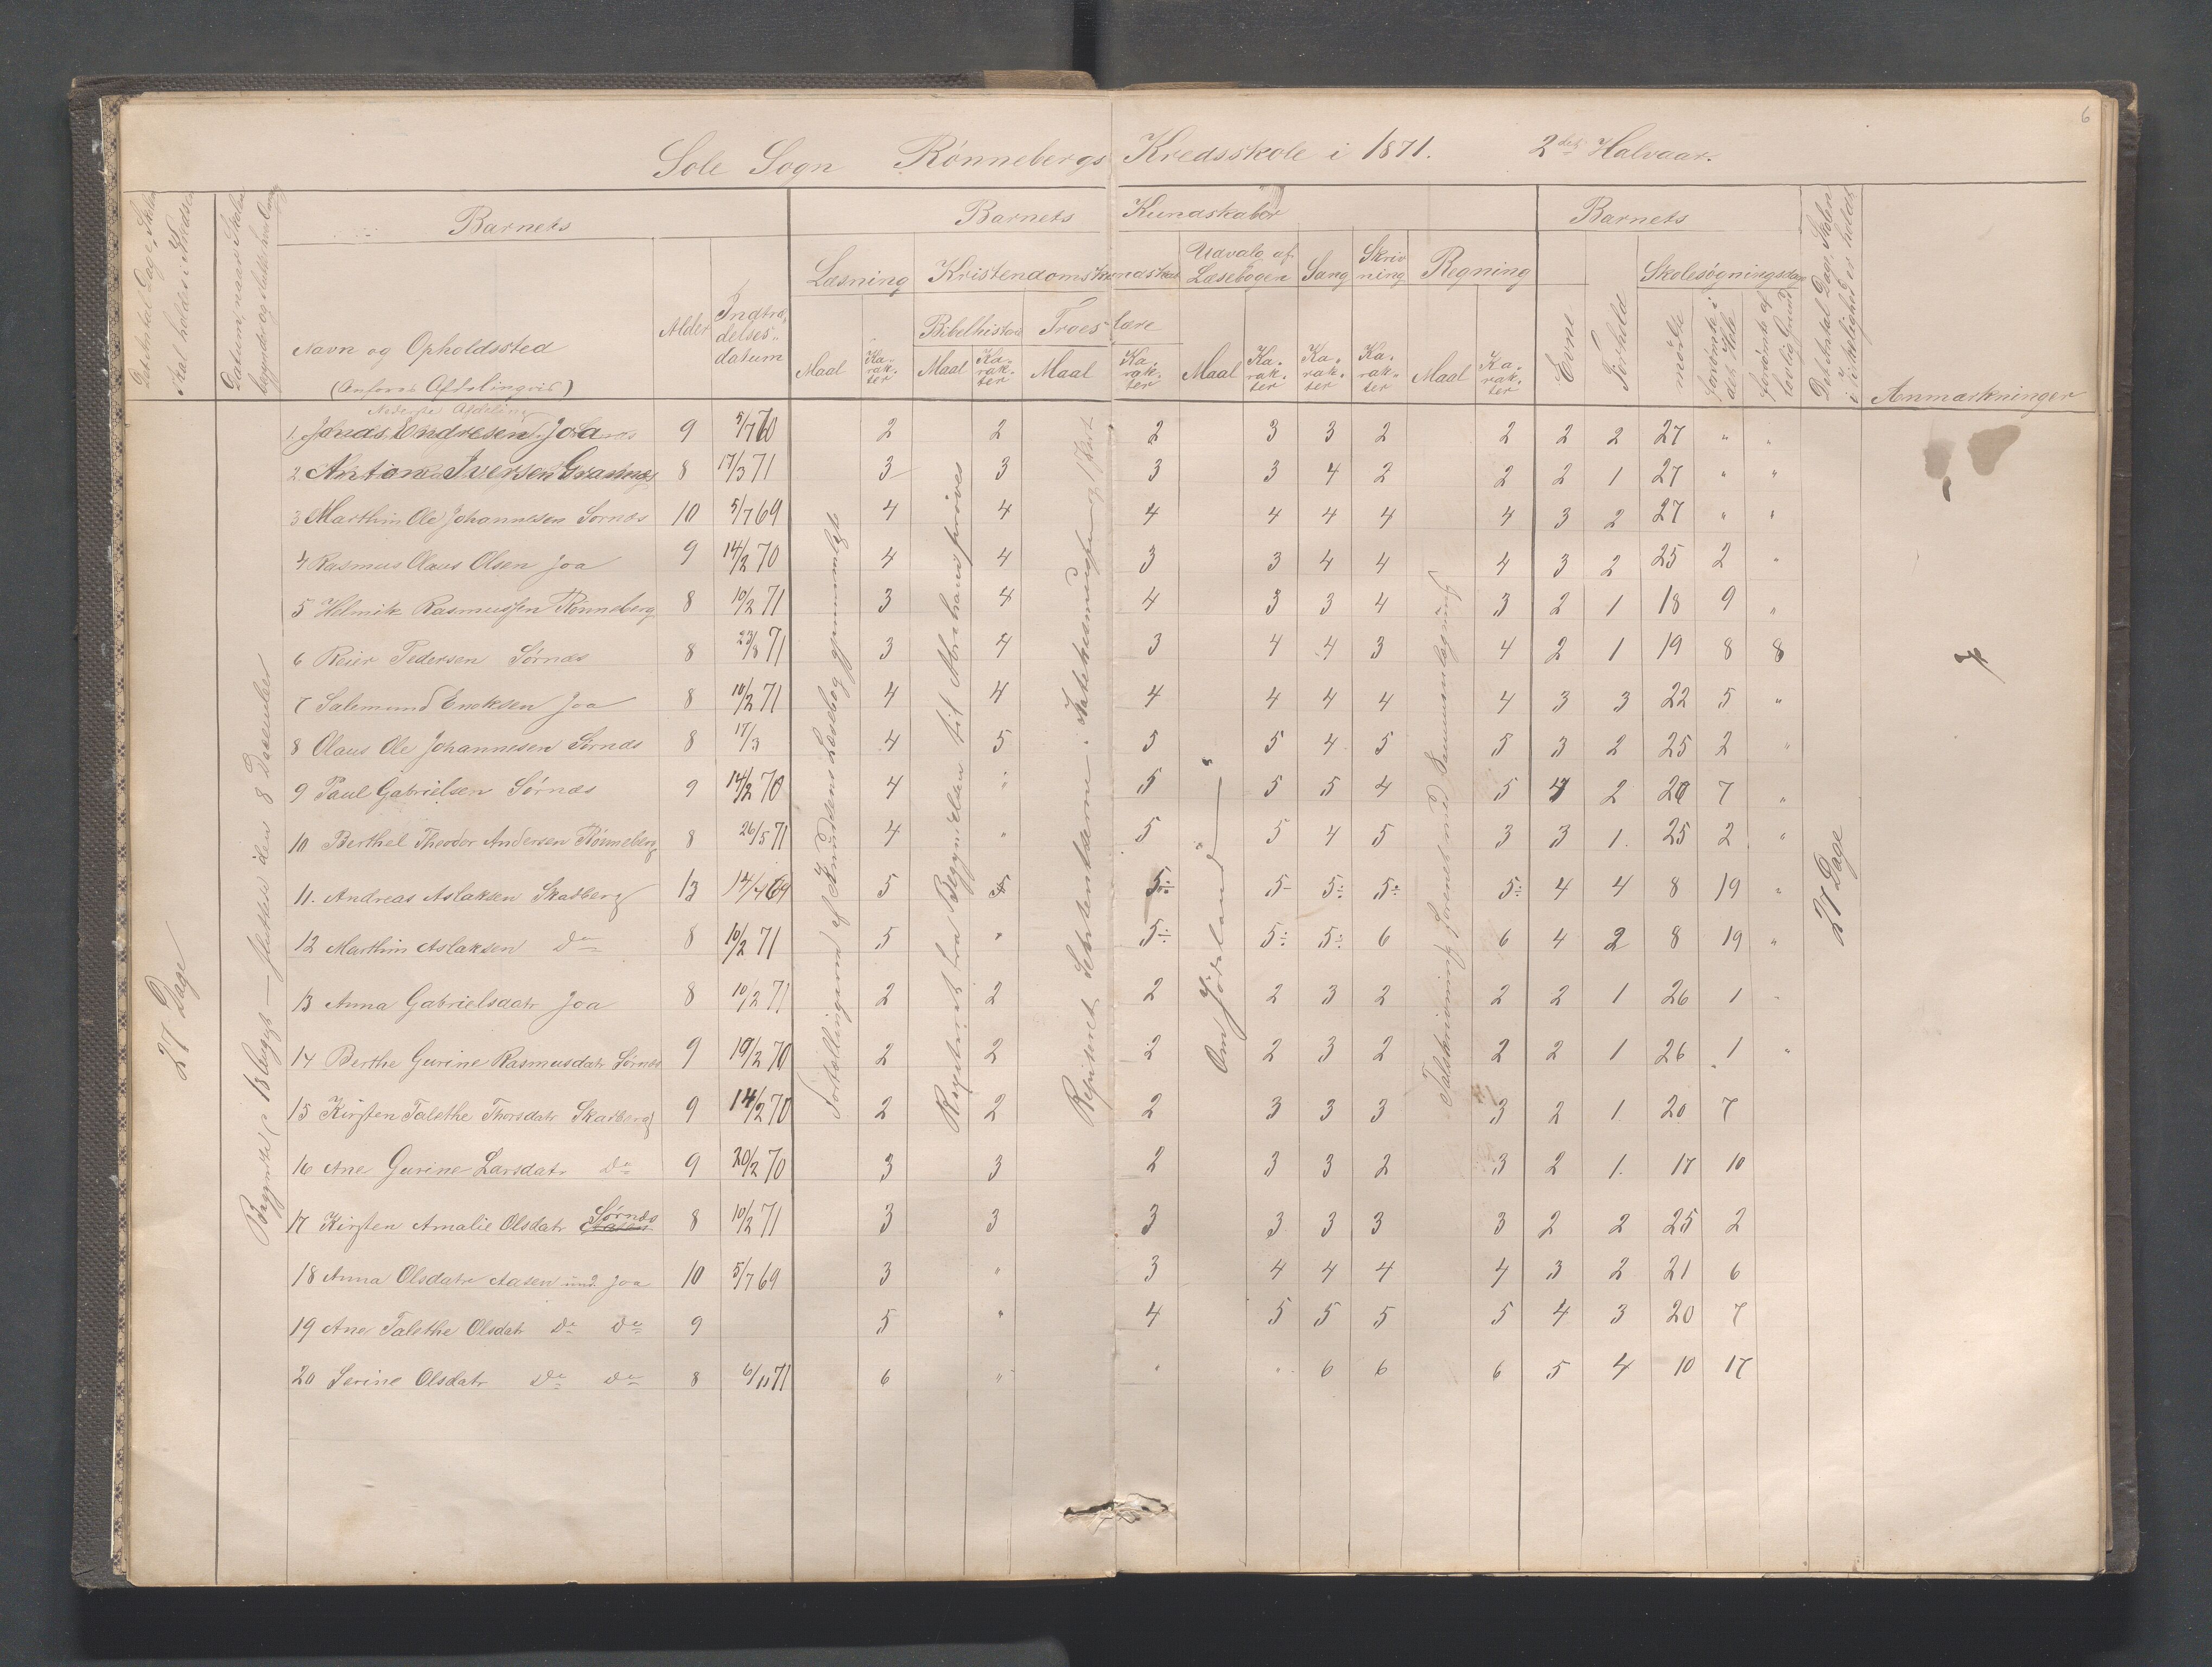 6
Sole Sogn Rönnebergs Kredsskole i 1871. 2det Halvaar.
Barnets
Barnets Kundskaber
Barnets
Det Antal Dage, Skolen skal holdes i Kredsen
Datum, naar Skolen begyndte og sluttede hver Gang
Navn og Opholdssted
(Anföres Afdelingvis)
Alder
Indtrædelsesdatum
Læsning
Kristendomskundskab
Udvalg af Læsebogen
Sang
Skrivning
Regning
Bibelhistorie
Troeslære
Maal
Karakter
Maal
Karakter
Maal
Karakter
Maal
Karakter
Karakter
Karakter
Maal
Karakter
Evne
Forhold
Skolesögningsdage
mödte
forsömte i det Hele
forsömte af lovlig Grund
Det Antal Dage, Skolen i Virkelighed er holdt
Anmærkninger
Nederste Afdeling
1. Jonas Endresen Joa 9 5/7 70 2 2 2 3 3 2 2 2 2 27 " "
2 Anton Iversen Grannes 8 17/3 71 3 3 3 3 4 2 2 2 1 27 " "
3 Marthin Ole Johannesen Sörnes 10 5/7 69 4 4 4 4 4 4 4 3 2 27 " "
4 Rasmus Olaus Olsen Joa 9 14/2 70 4 4 3 3 4 4 4 3 2 25 2 "
5 Helmik Rasmussen Rönneberg 8 10/2 71 3 4 4 3 3 4 3 2 1 18 9 "
6 Reier Pedersen Sörnes 8 23/8 71 3 4 3 4 4 3 4 2 1 19 8 8
7 Salemund Enoksen Joa 8 10/2 71 4 4 4 4 4 4 4 3 3 22 5 "
8 Olaus Ole Johannesen Sörnes 8 17/3 4 5 5 5 4 5 5 3 2 25 2 "
9 Paul Gabrielsen Sörnes 9 14/2 70 4 " 5 5 5 4 5 4 2 20 7 "
10 Berthel Theodor Andersen Rönneberg 8 26/5 71 4 " 5 5 4 5 3 3 1. 25 2 "
11. Andreas Aslaksen Skadberg 13 14/4 69 5 5÷ 5- 5÷ 5÷ 5÷ 4 4 8 19 "
12 Marthin Aslaksen Do 8 10/2 71 5 " 5÷ 5÷ 5÷ 6 6 4 2 8 19 "
13 Anna Gabrielsdatr Joa 8 10/2 71 2 2 2 2 3 2 2 2 1 26 1 "
14 Berthe Gurine Rasmusdatr Sörnes 9 19/2 70 2 2 2 2 3 2 2 2 1 26 1 "
15 Kirsten Talethe Thorsdatr Skadberg 9 14/2 70 2 2 2 3 3 3 3 2 1 20 7
16 Ane Gurine Larsdatr Do 9 20/2 70 3 3 2 3 3 2 3 2 1. 17 10
17 Kirsten Amalie Olsdatr Sörnes 8 10/2 71 3 3 3 3 3 3 3 2 2 25 2
18 Anna Olsdatr Aasen und. Joa 10 5/7 69 3 " 3 4 4 4 4 3 2 21 6
19 Ane Talethe Olsdatr Do Do 9 5 " 4 5 5 5 5 4 3 20 7
20 Serine Olsdatr Do Do 8 6/11 71 6 " " " 6 6 6 5 4 10 17
27 Dage
Begyndte sluttede den 8 December
Fortællingerne af Knudsens Læsebog gjennemlæst
Repeteret fra Begyndelsen til Abrahams pröves
Repeteret Sextenlærne.
Om Jödeland
Talskrivning forenet med Sammenlægning
27 Dage